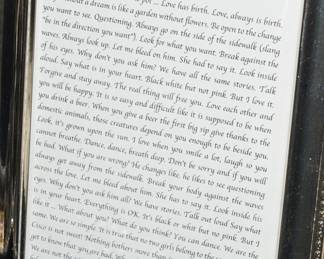 ... Love has birth. Love, always is birth.
about a dream is like a garden without flowers. Be open to the change
you want to see. Questioning Always go on the side of the sidewalk (slang
"be in the direction you want"). Look for what you want. Break against the
waves. Always look up. Let me bleed on him. She had to say it. Look inside
of his eyes. Why don't you ask him? We have all the same stories. Talk
aloud. Say what is in your heart. Black white but not pink. But I love it.
Forgive and stay away. The real thing will free you. Love each other and
you will be happy. It is so easy and difficult like it is supposed to be when
you drink a beer. When you give a beer the first big sip give thanks to the
domestic animals, those creatures depend on you enough to be beside you
Look, it's grown upon the sun. I love when you smile a lot, laugh so you
cannot breathe. Dance, dance, breath deep. Don't be sorry and if you will
be bad. What if you are wrong? He changes like, he likes to see questioning
always get away from the sidewalk. Break your body against the waves
across the love. Let me bleed about him. She has to say it. Look inside his
eyes. Why don't you ask him all? We have stories. Talk out loud Say what
is in your heart. Everything is OK. It's black or whit but no pink. But I
like it ... What about you? What do you think? You can dance. We are the
same. We are so simple. It is true that no two girls belong to the
Cisco is not sweet! Nothing bothers more than
get to know that you are bad,
We are not the